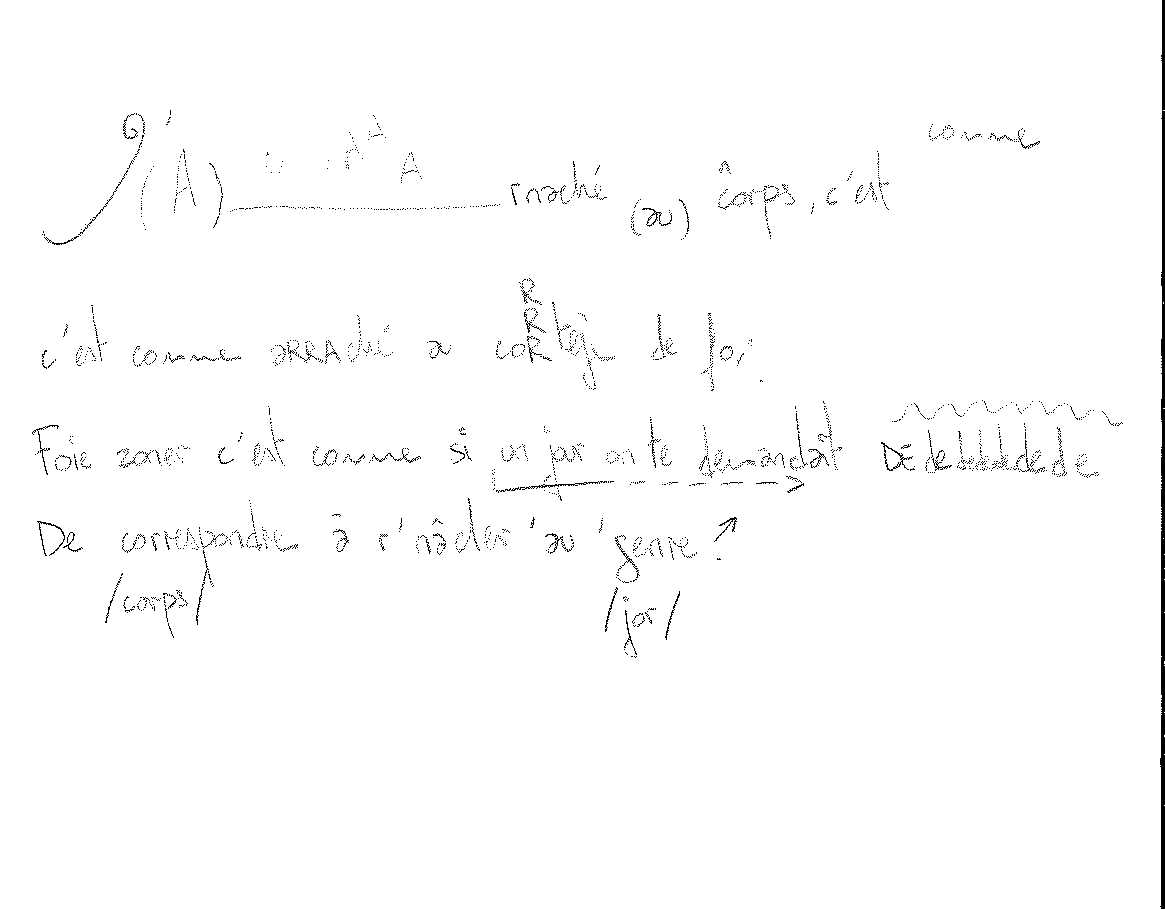 (A) A A rnaché (au) corps, c'est comme
c'est comme aRRAché au coRtège de foi.
Foie zoner c'est comme si un jar on te demandait DE de de de de de
De correspondre à r'nâcler 'au 'genre ?
/corps/ /jar/